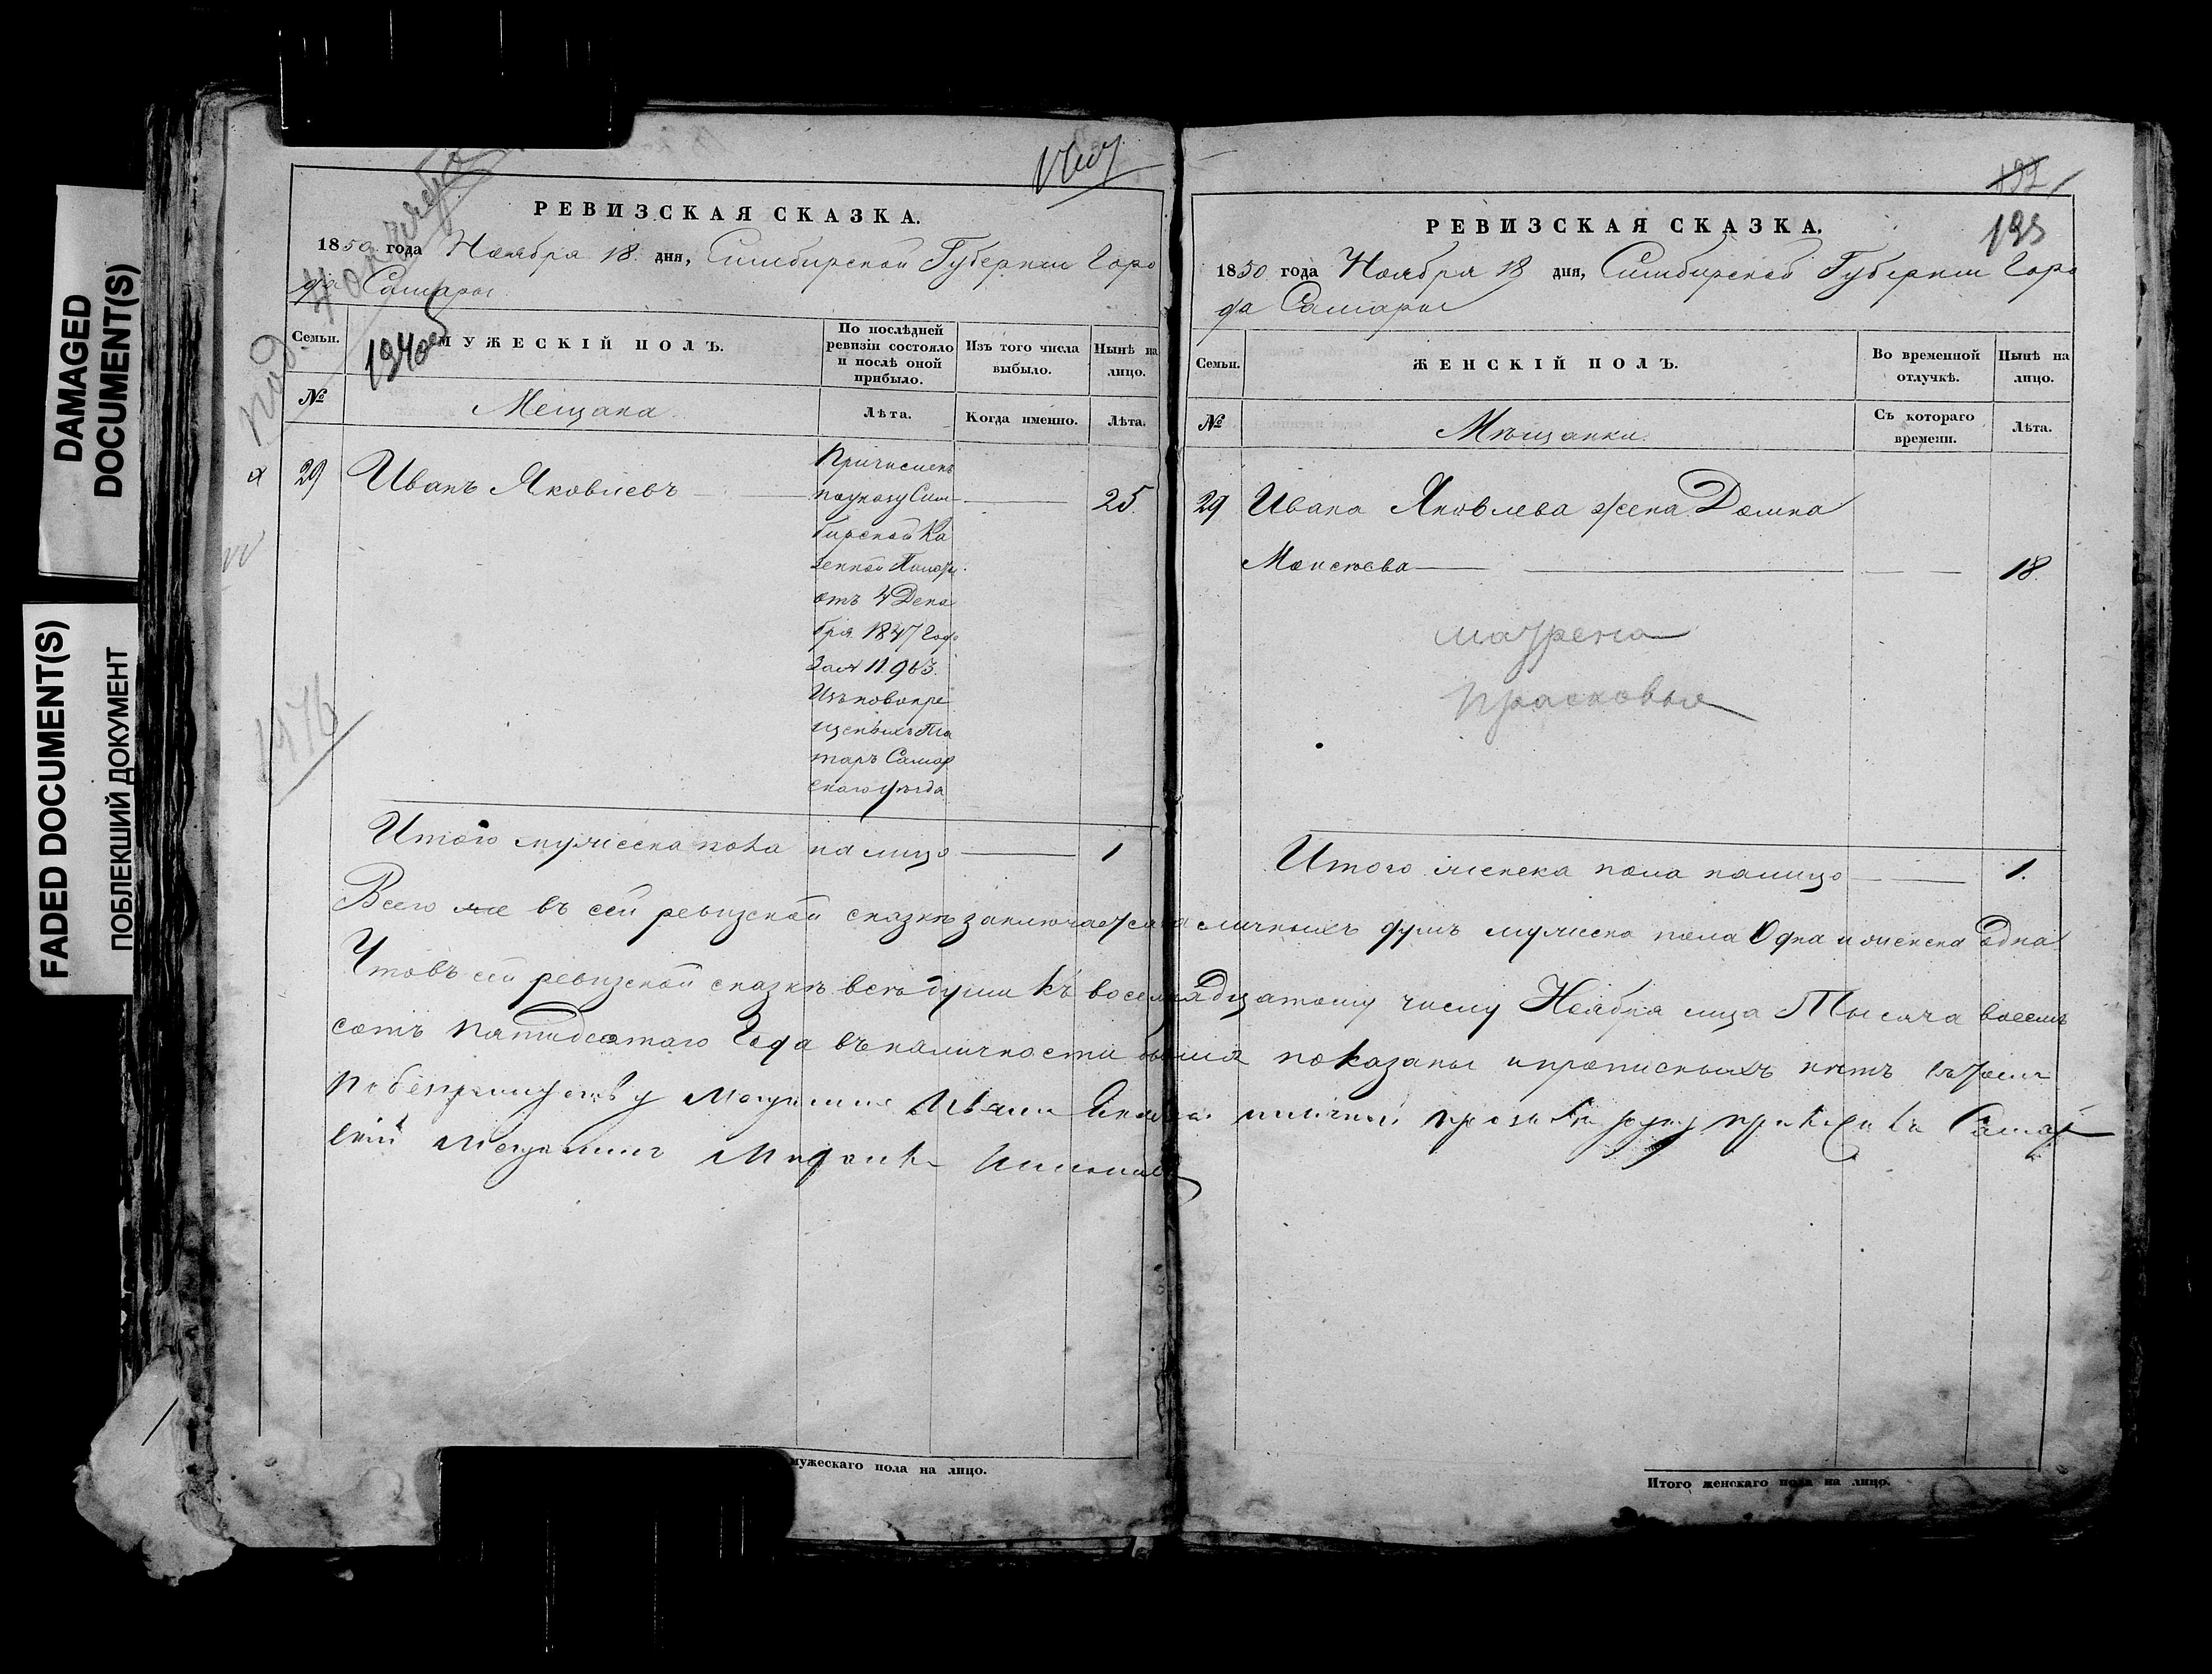 DAMAGED
DOCUMENT(S)
FADED DOCUMENT(S)
ПОБЛЕКШИЙ ДОКУМЕНТ
РЕВИЗСКАЯ СКАЗКА.
1850 года Ноября 18 дня, Симбирской Губернии Горо
да Самары
Семьи.
1940
МУЖЕСКІЙ ПОЛЪ.
По послѣдней
ревизіи состояло
и послѣ оной
прибыло.
Изъ того числа
выбыло.
Нынѣ на
лицо.
№
Мещана
Лѣта.
Когда именно.
Лѣта.
29 Иванъ Яковлевъ
25
Причисленъ
по указу Сим
бирской Ка
зенной Палаты
отъ 4 Дека
бря 1847 года
за № 11963
Изъ новокре
щеныхъ Та
таръ Самар
скаго уѣзда
Итого мужеска пола на лицо 1
1476
РЕВИЗСКАЯ СКАЗКА.
193
1850 года Ноября 18 дня, Симбирской Губернии Горо
да Самары
Семьи.
ЖЕНСКІЙ ПОЛЪ.
Во временной
отлучкѣ.
Нынѣ на
лицо.
№
Мѣщанки
Съ котораго
времени.
Лѣта.
29 Ивана Яковлева жена Домна
Моисеева 18
маврена
Прасковья
Итого женска пола налицо 1.
Всего же въ сей ревизской сказкѣ заключается на личныхъ душъ мужеска пола Одна и женска Одна
Что въ сей ревизской сказкѣ всѣ души къ восемнадцатому числу Ноября мца Тысяча восемь
сотъ пятидесятаго Года въ наличности бывшія показаны и прописныхъ нѣтъ въ томъ
по безграмотству Мещанина Ивана Яковлева личной прозьбѣ руку приложилъ Самар
ский Мещанинъ
мужескаго пола на лицо.
Итого женскаго пола на лицо.